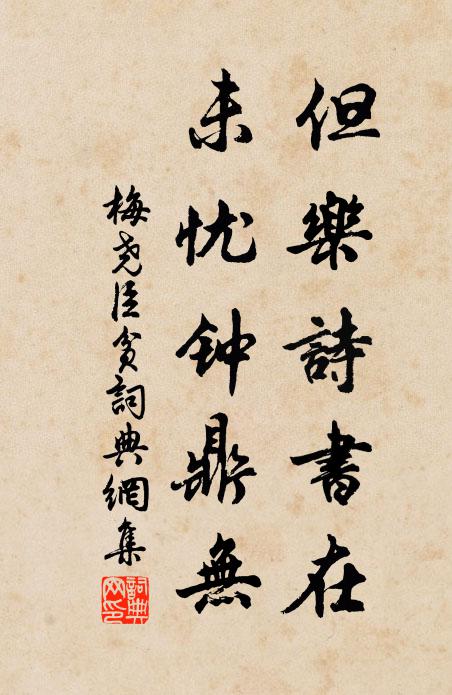 但樂詩書在
未忧钟鼎無
梅尧臣贫詞典網集
詞典网印